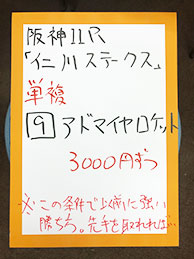 阪神11R
「仁川ステークス」
単複
9 アドマイヤロケット
3000円ずつ
※この条件では滅に強い
勝ちろ。先手を取れれば…